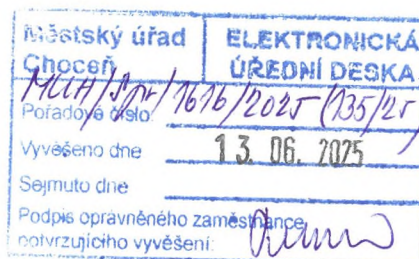 Městský úřad
Choceň
ELEKTRONICKÁ
ÚŘEDNÍ DESKA
MUCH/Spr/1616/2025 (135/25)
Pořadové číslo:
Vyvěšeno dne 13. 06. 2025
Sejmuto dne
Podpis oprávněného zaměstnance
potvrzujícího vyvěšení: